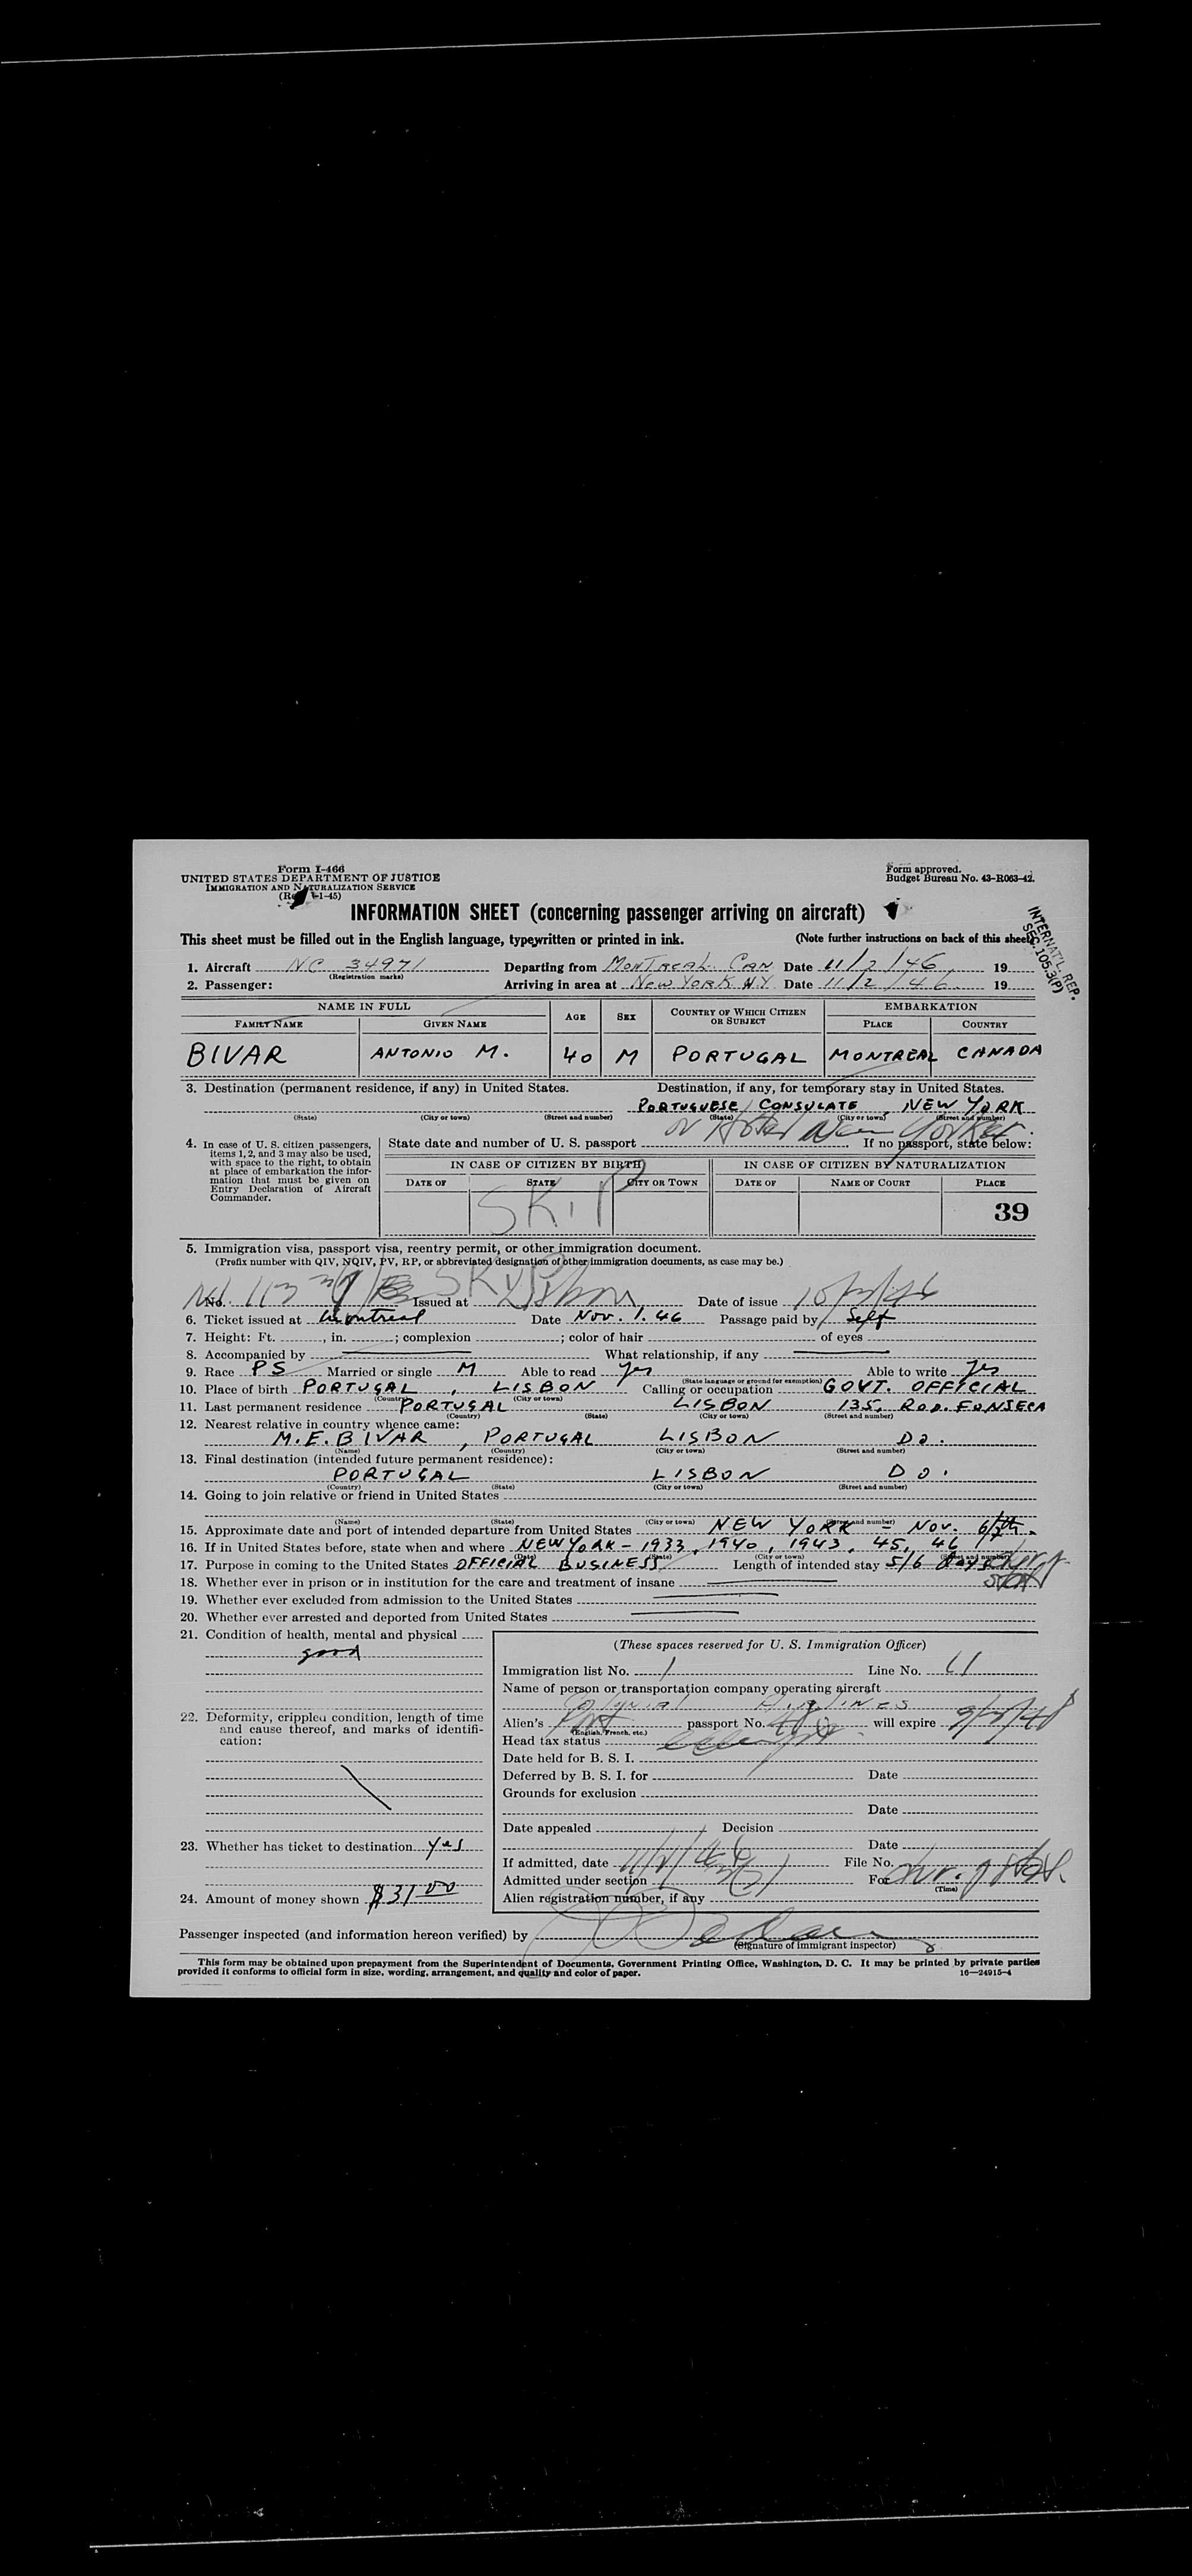 Form I-466
UNITED STATES DEPARTMENT OF JUSTICE
IMMIGRATION AND NATURALIZATION SERVICE
1-45)
Form approved.
Budget Bureau No. 43-R063-42.
INFORMATION SHEET (concerning passenger arriving on aircraft)
This sheet must be filled out in the English language, typewritten or printed in ink. (Note further instructions on back of this sheet)
INTERNAT'L. REP.
SEC. 105.3(P)
1. Aircraft NC 34971 Departing from MONTREAL CAN Date 11/2/46 19
(Registration marks)
2. Passenger: Arriving in area at NEW YORK N.Y. Date 11/2/46 19
NAME IN FULL AGE SEX COUNTRY OF WHICH CITIZEN OR SUBJECT EMBARKATION
FAMILY NAME GIVEN NAME PLACE COUNTRY
BIVAR ANTONIO M. 40 M PORTUGAL MONTREAL CANADA
3. Destination (permanent residence, if any) in United States. Destination, if any, for temporary stay in United States.
PORTUGUESE CONSULATE, NEW YORK
(State) (City or town) (Street and number) (State) (City or town) (Street and number)
or Hotel New Yorker.
4. In case of U. S. citizen passengers, items 1, 2, and 3 may also be used, with space to the right, to obtain at place of embarkation the information that must be given on Entry Declaration of Aircraft Commander.
State date and number of U. S. passport If no passport, state below:
IN CASE OF CITIZEN BY BIRTH IN CASE OF CITIZEN BY NATURALIZATION
DATE OF STATE CITY OR TOWN DATE OF NAME OF COURT PLACE
SKIP
39
5. Immigration visa, passport visa, reentry permit, or other immigration document.
(Prefix number with QIV, NQIV, PV, RP, or abbreviated designation of other immigration documents, as case may be.)
No. Issued at Lisbon Date of issue
6. Ticket issued at Montreal Date Nov. 1. 46 Passage paid by Self
7. Height: Ft. , in. ; complexion ; color of hair of eyes
8. Accompanied by What relationship, if any
9. Race PS Married or single M Able to read Yes Able to write Yes
(State language or ground for exemption)
10. Place of birth PORTUGAL, LISBON Calling or occupation GOVT. OFFICIAL
(Country) (City or town)
11. Last permanent residence PORTUGAL LISBON 135, ROD. FONSECA
(Country) (State) (City or town) (Street and number)
12. Nearest relative in country whence came:
M. E. BIVAR, PORTUGAL LISBON DO.
(Name) (Country) (City or town) (Street and number)
13. Final destination (intended future permanent residence):
PORTUGAL LISBON DO.
(Country) (State) (City or town) (Street and number)
14. Going to join relative or friend in United States
(Name) (State) (City or town) (Street and number)
15. Approximate date and port of intended departure from United States NEW YORK - NOV. 6/7th.
16. If in United States before, state when and where NEW YORK - 1933, 1940, 1943, 45, 46
(Date) (State) (City or town) (Street and number)
17. Purpose in coming to the United States OFFICIAL BUSINESS Length of intended stay 5/6 days
18. Whether ever in prison or in institution for the care and treatment of insane
19. Whether ever excluded from admission to the United States
20. Whether ever arrested and deported from United States
21. Condition of health, mental and physical
good
22. Deformity, crippled condition, length of time and cause thereof, and marks of identification:
23. Whether has ticket to destination yes
24. Amount of money shown $31 00
(These spaces reserved for U. S. Immigration Officer)
Immigration list No. 1 Line No. 11
Name of person or transportation company operating aircraft
Colonial AIRLINES
Alien's Port passport No. will expire
(English, French, etc.)
Head tax status
Date held for B. S. I.
Deferred by B. S. I. for Date
Grounds for exclusion
Date
Date appealed Decision
Date
If admitted, date 11/2/46 File No.
Admitted under section 3(7) For
(Time)
Alien registration number, if any
Passenger inspected (and information hereon verified) by
(Signature of immigrant inspector)
This form may be obtained upon prepayment from the Superintendent of Documents, Government Printing Office, Washington, D. C. It may be printed by private parties
provided it conforms to official form in size, wording, arrangement, and quality and color of paper. 16—24915-4